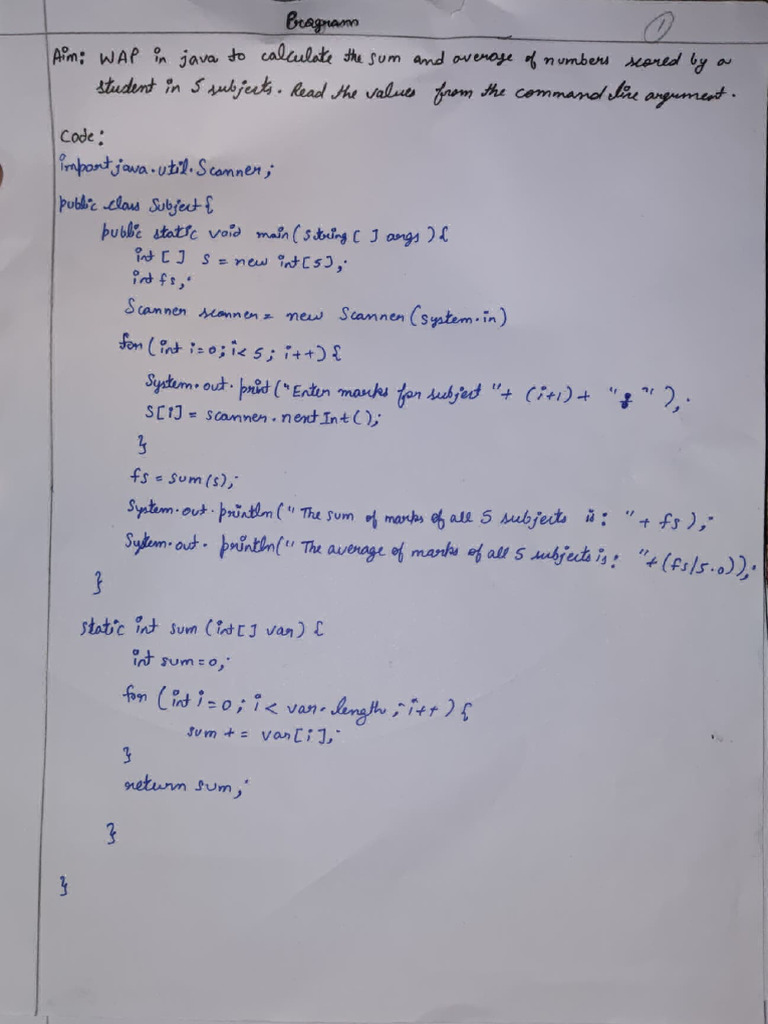 Program
1
Aim: WAP in java to calculate the sum and average of numbers scored by a
student in 5 subjects. Read the values from the command line argument.
Code:
import java.util.Scanner;
public class Subject {
public static void main (String [ ] args ) {
int [ ] s = new int[5];
int fs;
Scanner scanner = new Scanner (System.in)
for (int i=0; i< 5; i++) {
System.out.print ("Enter marks for subject "+ (i+1) + " " );
s[i] = scanner.nextInt();
}
fs = sum(s);
System.out.println(" The sum of marks of all 5 subjects is: "+ fs );
System.out.println(" The average of marks of all 5 subjects is: "+ (fs/5.0));
}
static int sum (int[] var) {
int sum=0;
for (int i=0; i< var.length; i++) {
sum += var[i];
}
return sum;
}
}